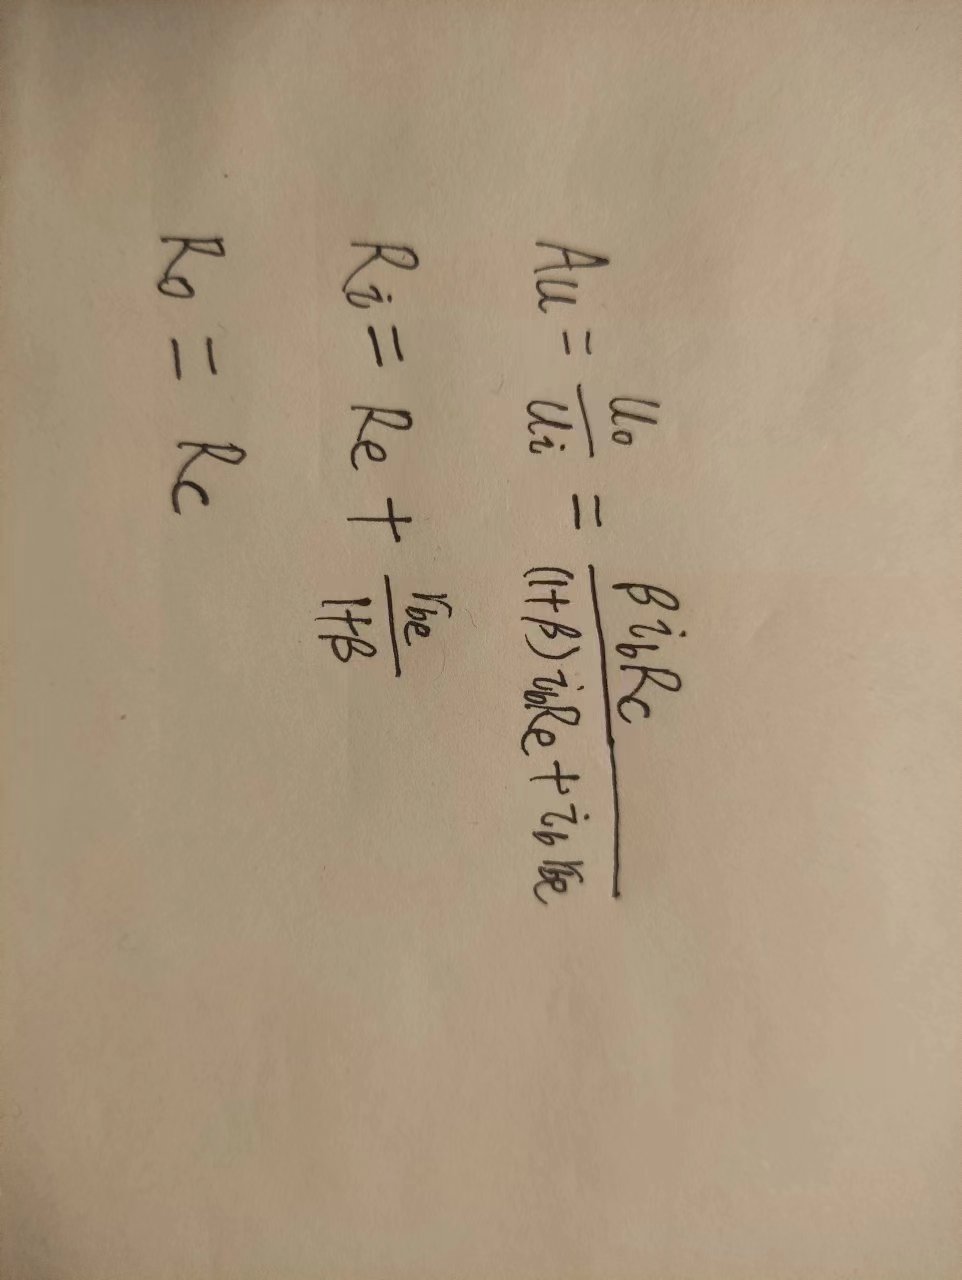 Au = uo/ui = βibRc/((1+β)ibRe + ibrbe)
Ri = Re + rbe/(1+β)
Ro = Rc